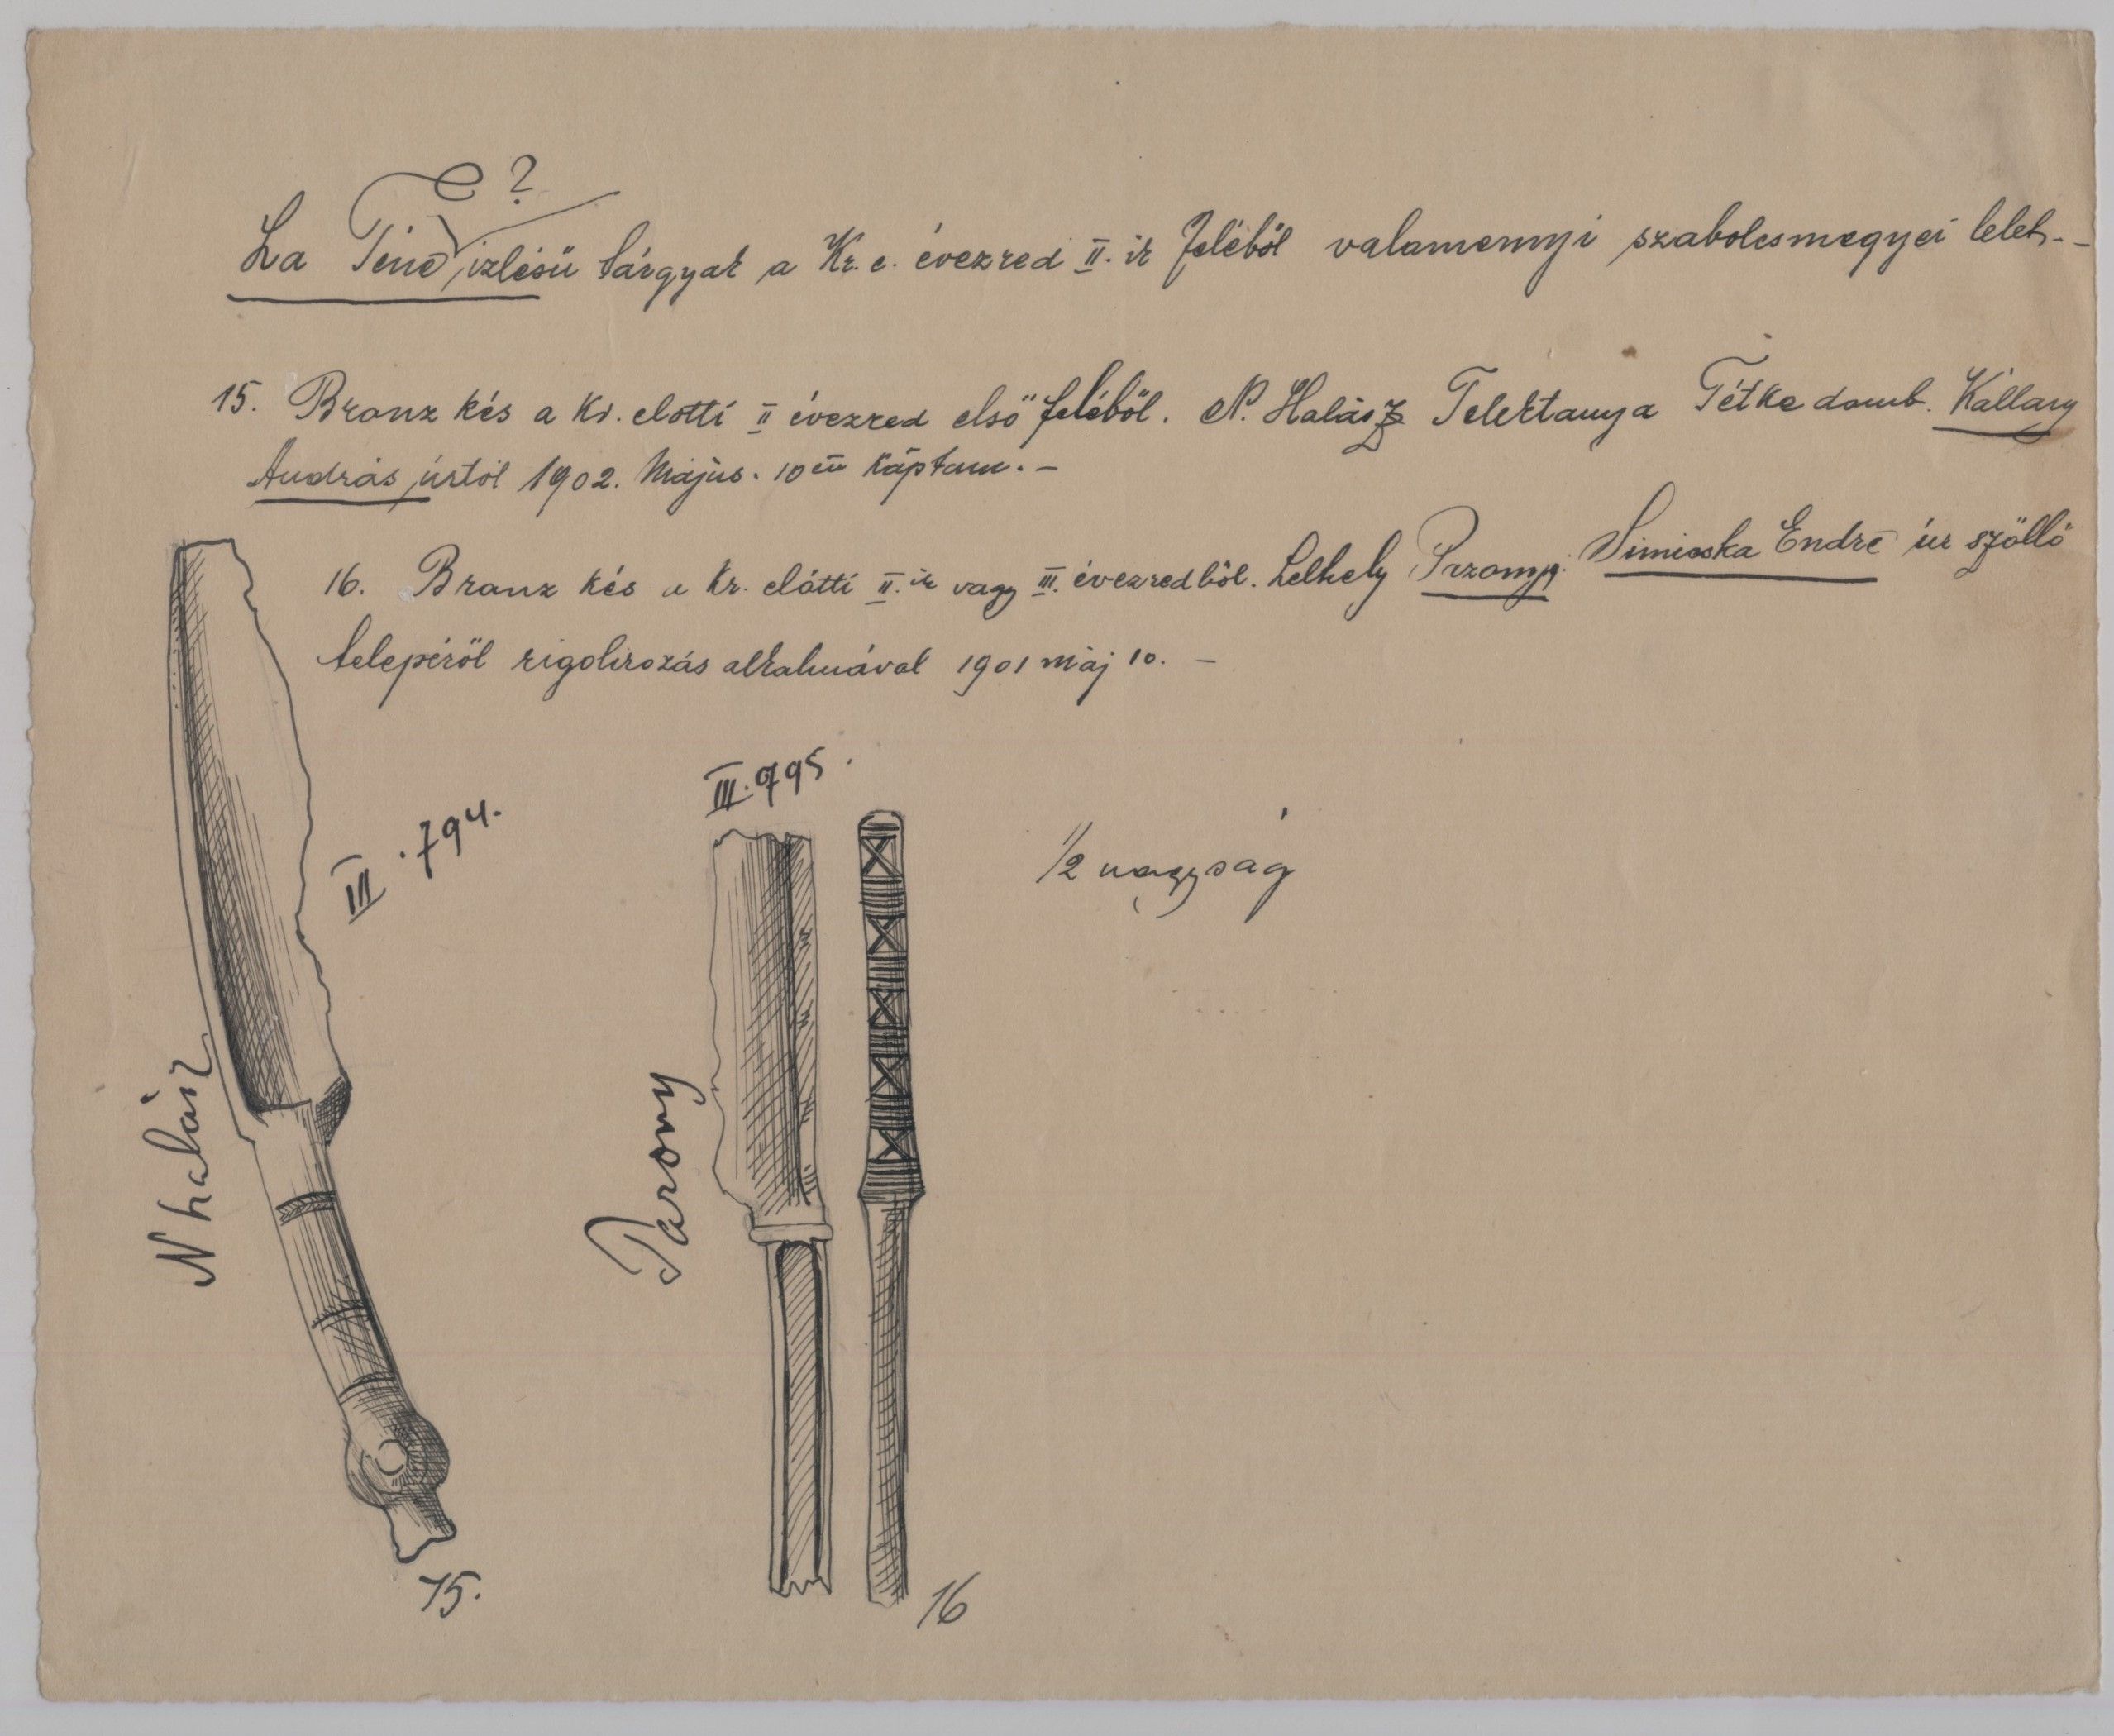 ?
La Tène izlésü tárgyak a Kr. e. évezred II. ik feléből valamennyi szabolcsmegyei lelet. -
15. Bronz kés a Kr. előtti II évezred első feléből. N. Halász Telektanya Tétke domb. Kállay
András úrtól 1902. Május. 10én kaptam. -
16. Bronz kés a Kr. előtti II. ik vagy III. évezredből. Lelhely Pazony. Simicska Endre úr szőllő
telepéről rigolirozás alkalmával 1901 máj 10. -
III. 794.
III. 795.
1/2 nagyság
N halász
Pazony
15.
16